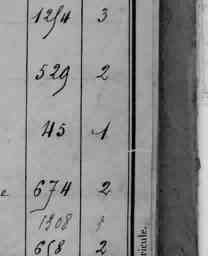 1254 3
529 2
45 1
e 674 2
1308 1
658 2
ricule.